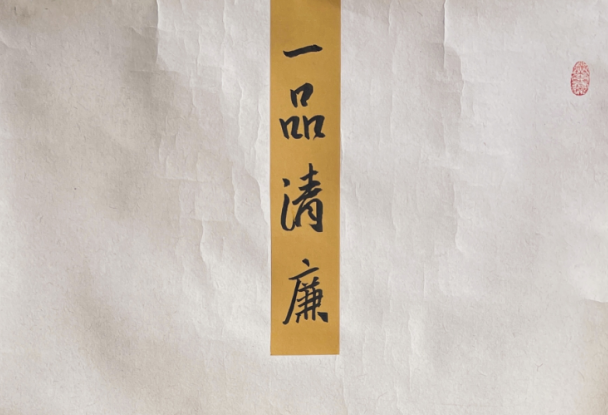 一品清廉